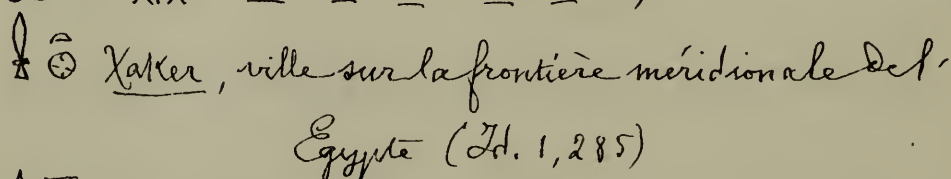 Xaker, ville sur la frontière méridionale de l'
Egypte (Id. 1, 285)